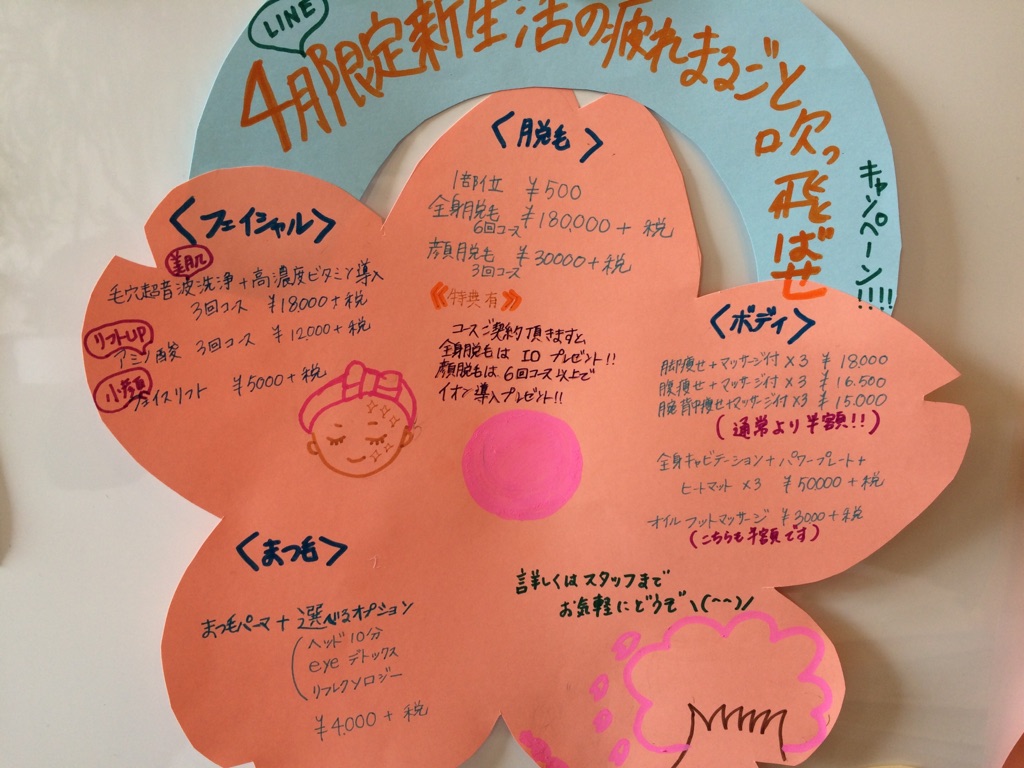 LINE
4月限定新生活の疲れまるごと吹っ飛ばせ
キャンペーン!!!!
<脱毛>
1部位 ¥500
全身脱毛 ¥180,000+税
6回コース
顔脱毛 ¥30000+税
3回コース
《特典有》
コースご契約頂きますと、
全身脱毛は IO プレゼント!!
顔脱毛は6回コース以上で
イオン導入プレゼント!!
<フェイシャル>
美肌
毛穴超音波洗浄+高濃度ビタミン導入
3回コース ¥18000+税
リフトUP
アミノ酸 3回コース ¥12,000+税
小顔
フェイスリフト ¥5000+税
<ボディ>
脚痩せ+マッサージ付×3 ¥18.000
腹痩せ+マッサージ付×3 ¥16.500
腕背中痩せ+マッサージ付×3 ¥15.000
(通常より半額!!)
全身キャビテーション+パワープレート+
ヒートマット×3 ¥50000+税
オイルフットマッサージ ¥3000+税
(こちらも半額です)
<まつ毛>
まつ毛パーマ+選べるオプション
(ヘッド10分
eyeデトックス
リフレクソロジー
¥4.000+税
詳しくはスタッフまで
お気軽にどうぞ\(^-^)/